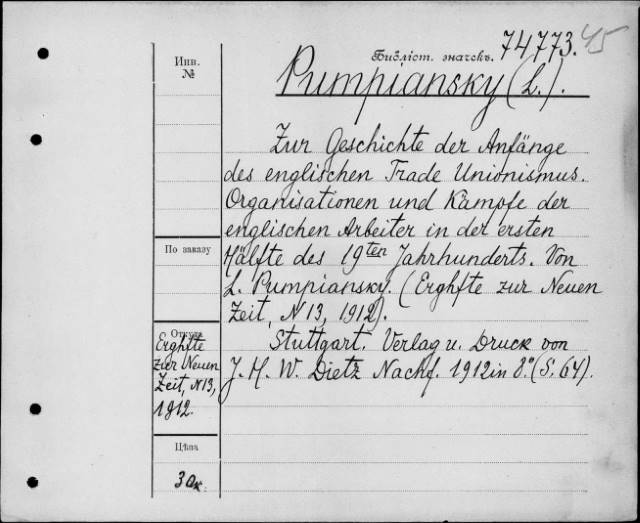 Инв.
№
Библіот. значекъ. 74773. 45
Pumpiansky (L.).
Zur Geschichte der Anfänge
des englischen Trade Unionismus.
Organisationen und Kämpfe der
englischen Arbeiter in der ersten
Hälfte des 19ten Jahrhunderts. Von
L. Pumpiansky. (Erghfte zur Neuen
Zeit, N 13, 1912).
Stuttgart. Verlag u. Druck von
J. H. W. Dietz Nachf. 1912 in 8°. (S. 64).
По заказу
Откуда
Erghfte
zur Neuen
Zeit, N 13,
1912.
Цѣна
30к.